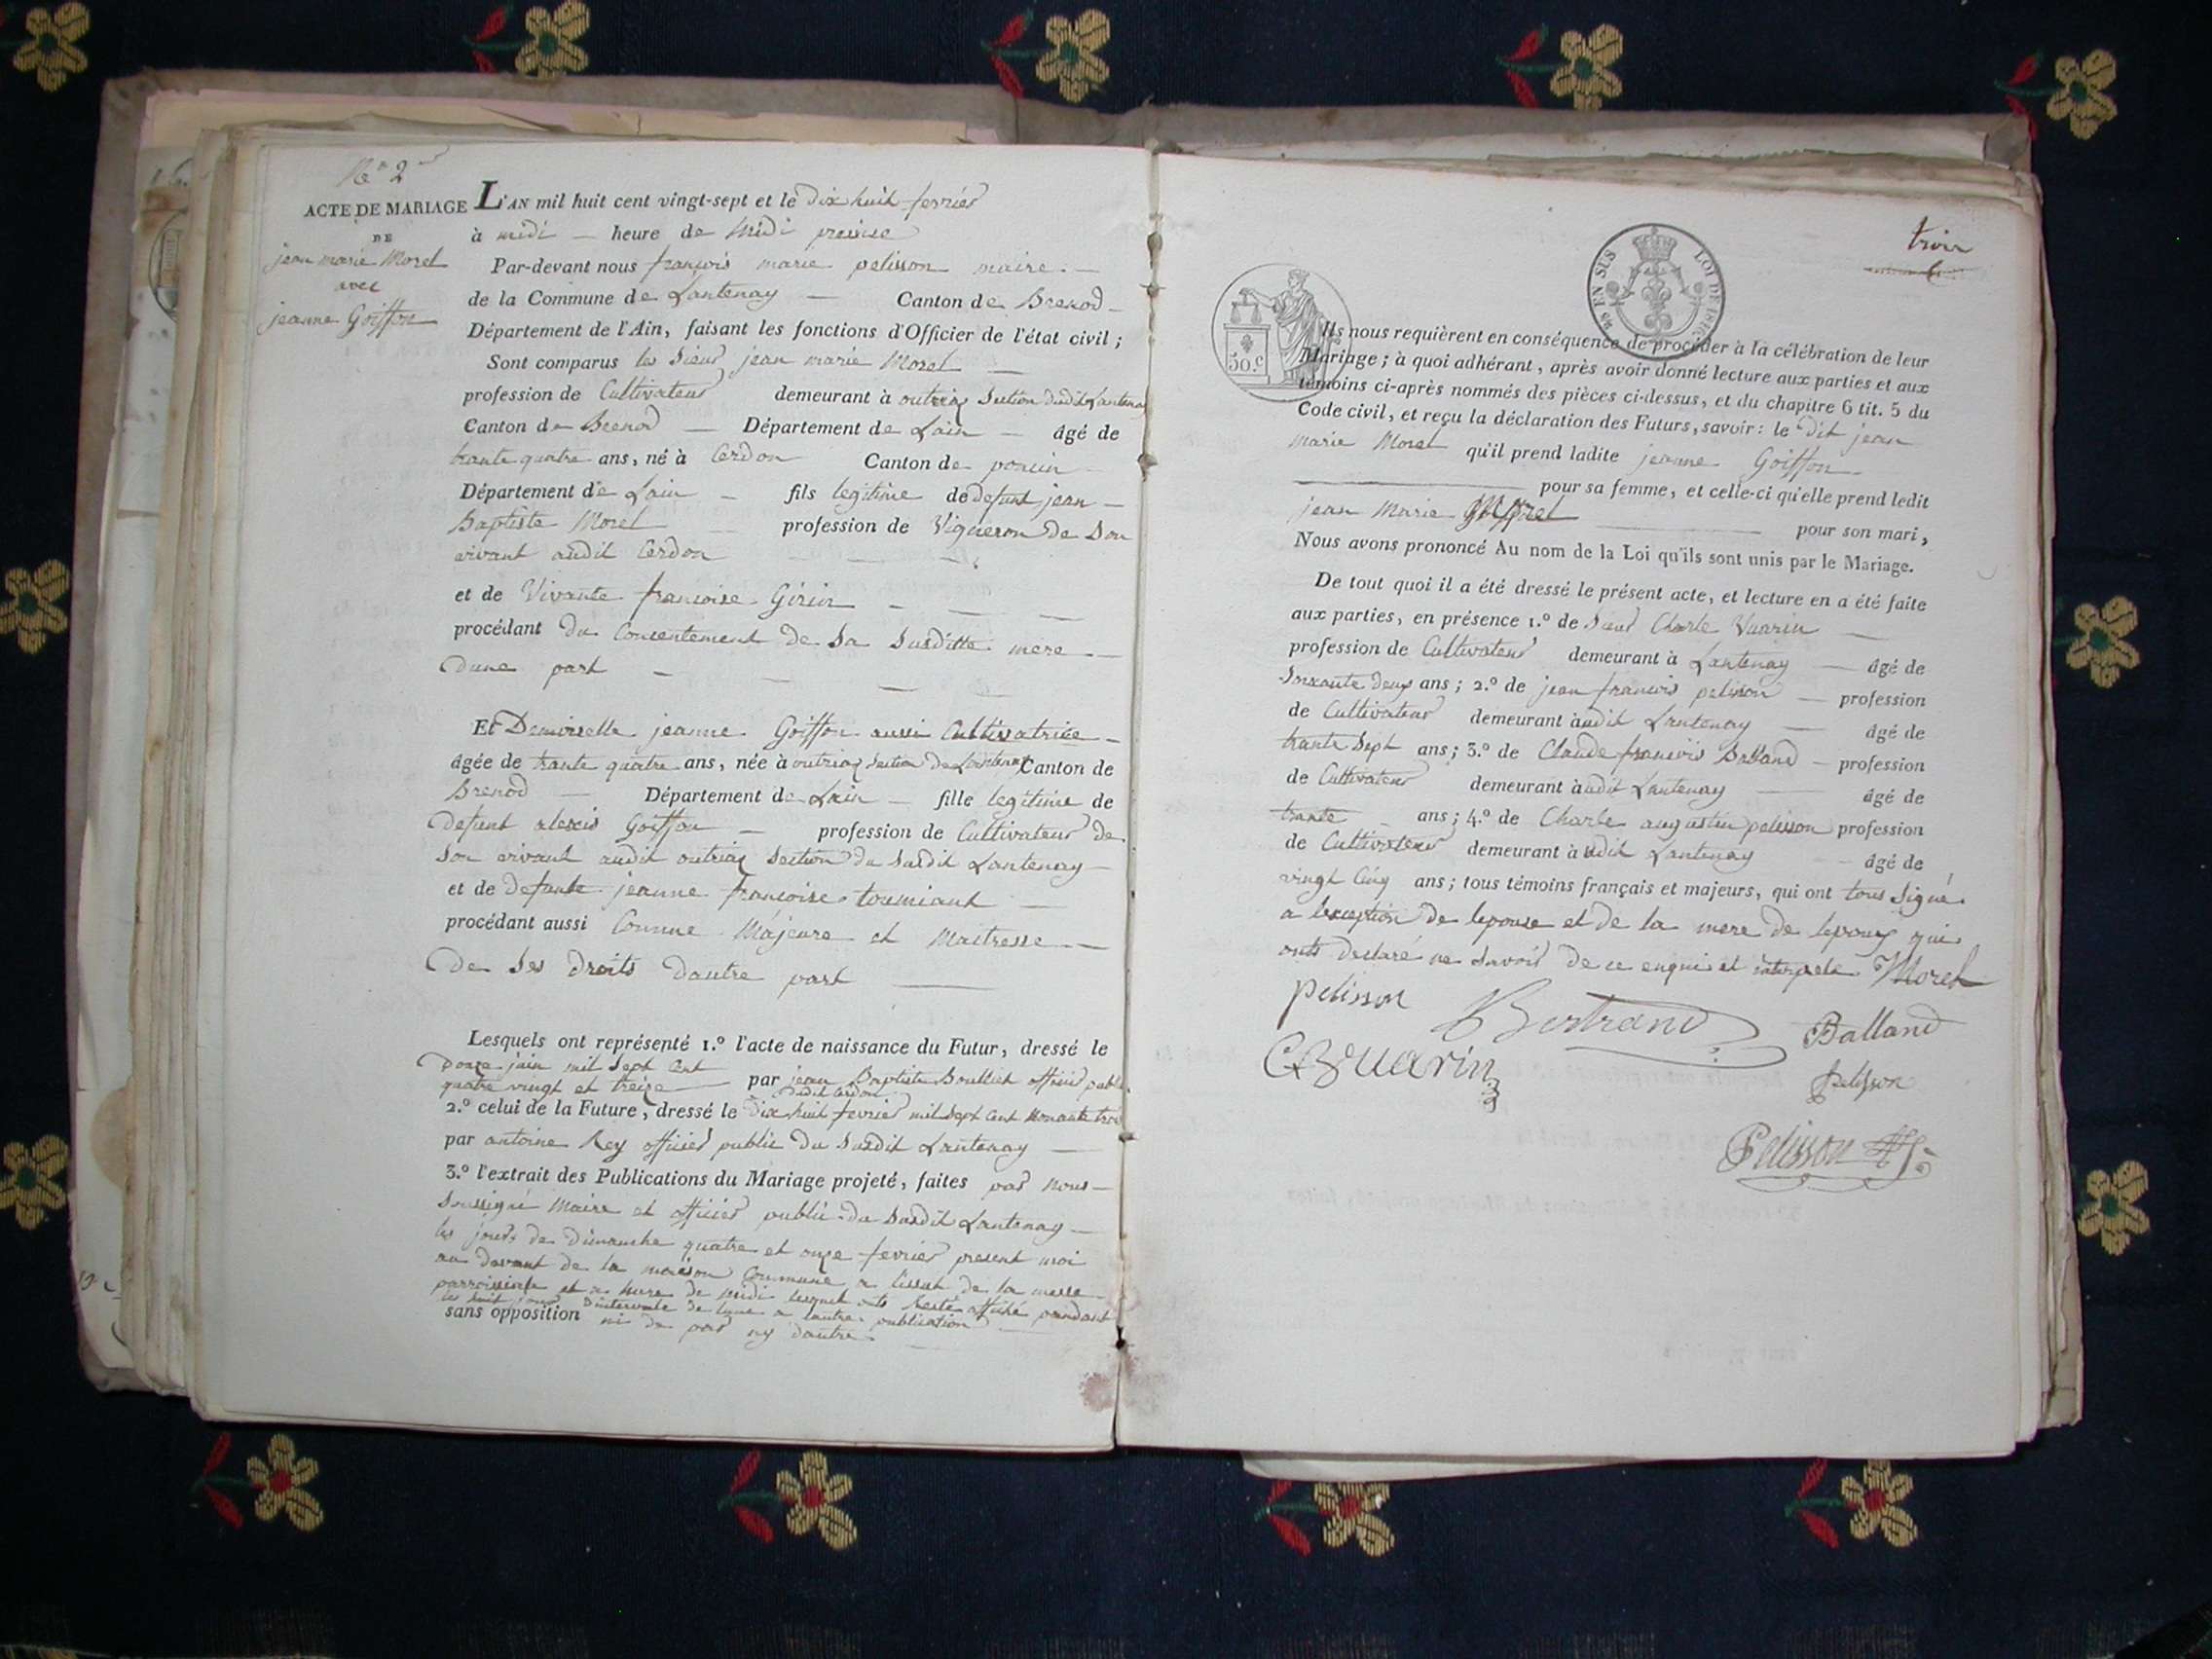 N.o 2
ACTE DE MARIAGE
DE
jean marie Morel
avec
jeanne Goiffon
L'AN mil huit cent vingt-sept et le dix huit fevrier
à midi — heure de Midi precise
Par-devant nous françois marie pelisson maire —
de la Commune de Lantenay — Canton de Brenod —
Département de l'Ain, faisant les fonctions d'Officier de l'état civil;
Sont comparus les Sieur jean marie Morel —
profession de Cultivateur demeurant à outriaz Section dudit Lantenay
Canton de Brenod — Département de Lain — âgé de
trante quatre ans, né à Cerdon Canton de poncin
Département de Lain — fils legitime de defunt jean —
Baptiste Morel — profession de Vigneron de Son
vivant audit Cerdon
et de Vivante francoise Girin — — —
procédant du Consentement de Sa Susditte mere —
dune part — — — —
Et Demoiselle jeanne Goiffon aussi Cultivatrice —
âgée de trante quatre ans, née à outriaz Section de Lantenay Canton de
Brenod — Département de Lain — fille legitime de
defunt alexis Goiffon — profession de Cultivateur de
Son vivant audit outriaz Section du Susdit Lantenay —
et de defunte jeanne françoise tourniant —
procédant aussi Comme Majeure et Maitresse —
de Ses droits dautre part —
Lesquels ont représenté 1.o l'acte de naissance du Futur, dressé le
douze juin mil Sept Cent
quatre vingt et treize — par jean Baptiste Boullier officier public
dudit Cerdon
2.o celui de la Future, dressé le dix huit fevrier mil Sept Cent Nonante trois
par antoine Rey officier public du Susdit Lantenay —
3.o l'extrait des Publications du Mariage projeté, faites par Nous —
Soussigné Maire et officier public du Susdit Lantenay —
les jours de dimanche quatre et onze fevrier present moi
au devant de la maison Commune a lissut de la messe
parroissiale et a hure de midi lesquel onts Resté affiché pandant
les huit jours dintervale de lune a lautre publication
sans opposition ni de par ny dautre
trois
EN SUS
LOI DE 1816
50.c
Ils nous requièrent en conséquence de procéder à la célébration de leur
Mariage; à quoi adhérant, après avoir donné lecture aux parties et aux
témoins ci-après nommés des pièces ci-dessus, et du chapitre 6 tit. 5 du
Code civil, et reçu la déclaration des Futurs, savoir: le dit jean
marie Morel qu'il prend ladite jeanne Goiffon
— pour sa femme, et celle-ci qu'elle prend ledit
jean Marie Morel — pour son mari,
Nous avons prononcé Au nom de la Loi qu'ils sont unis par le Mariage.
De tout quoi il a été dressé le présent acte, et lecture en a été faite
aux parties, en présence 1.o de Sieur Charle Vuarin —
profession de Cultivateur demeurant à Lantenay — âgé de
Soixante deux ans; 2.o de jean francois pelisson — profession
de Cultivateur demeurant audit Lantenay — âgé de
trante Sept ans; 3.o de Claude francois Balland — profession
de Cultivateur demeurant audit Lantenay — âgé de
trante — ans; 4.o de Charle augustin pelisson profession
de Cultivateur demeurant à udit Lantenay — âgé de
vingt Cinq ans; tous témoins français et majeurs, qui ont tous Signé
a lexception de lepouse et de la mere de lepoux qui
onts declaré ne Savoir de ce enquis et interpele Morel
pelisson
Bertrand
Balland
C Vuarin
pelisson
Pelisson